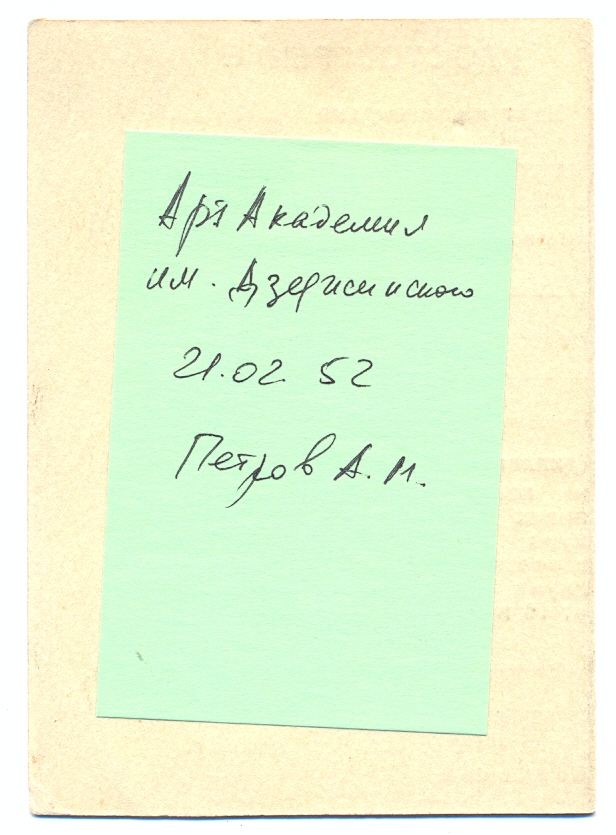 Арт Академия
им. Дзержинского
21.02 52
Петров А. М.